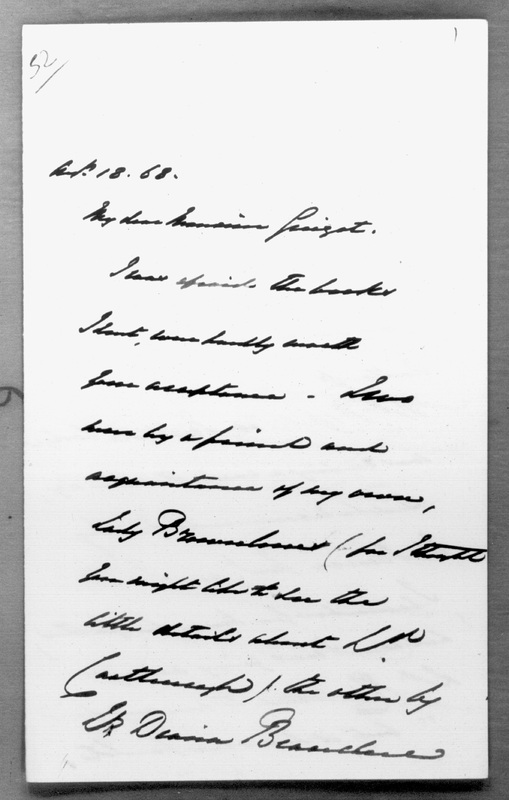 52/
1
Ap. 18. 68.
My dear Monsieur Guizot.
I was afraid the books
I sent, were hardly worth
your acceptance - Two
were by a friend and
acquaintance of my own,
Lady Brownlow (for I thought
you might like to see the
little details about Ld
Castlereagh) the other by
Ly Diana Beauclerc